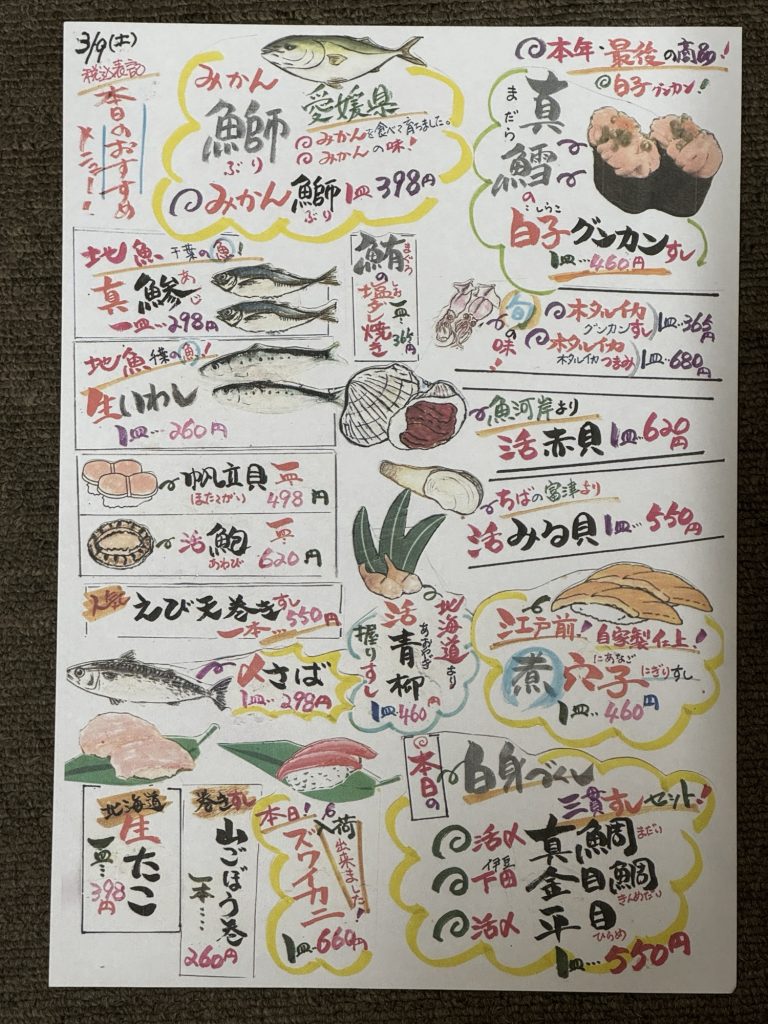 3/9(土)
税込表記
本日のおすすめ
メニュー!
みかん
鰤
ぶり
愛媛県
みかんを食べて育ちました。
みかんの味!
みかん鰤 1皿398円
ぶり
本年・最後の商品!
白子グンカン!
まだら
真鱈の
しらこ
白子グンカンすし
1皿…460円
地魚 千葉の魚!
真鯵
あじ
一皿…298円
まぐろ
鮪の塩ダレ焼き
しお
一皿…365円
旬の味!
ホタルイカ
グンカンすし
1皿…365円
ホタルイカ
ホタルイカつまみ
1皿…680円
地魚 千葉の魚!
生いわし
1皿…260円
魚河岸より
活赤貝 1皿620円
帆立貝
ほたてがい
一皿
498円
活鮑
あわび
一皿
620円
ちばの富津より
活みる貝 1皿…550円
人気
えび天巻きすし
一本…550円
北海道より
活青柳
あおやぎ
握りすし
1皿…460円
江戸前!自家製仕上!
煮穴子
にあなご
にぎりすし
1皿…460円
〆さば
1皿…298円
北海道
生たこ
一皿…
398円
巻きすし
山ごぼう巻
一本……
260円
本日!入荷出来ました!
ズワイカニ
1皿…660円
本日の
白身づくし
三貫すしセット!
活〆 真鯛
まだい
伊豆
下田 金目鯛
きんめだい
活〆 平目
ひらめ
1皿…550円